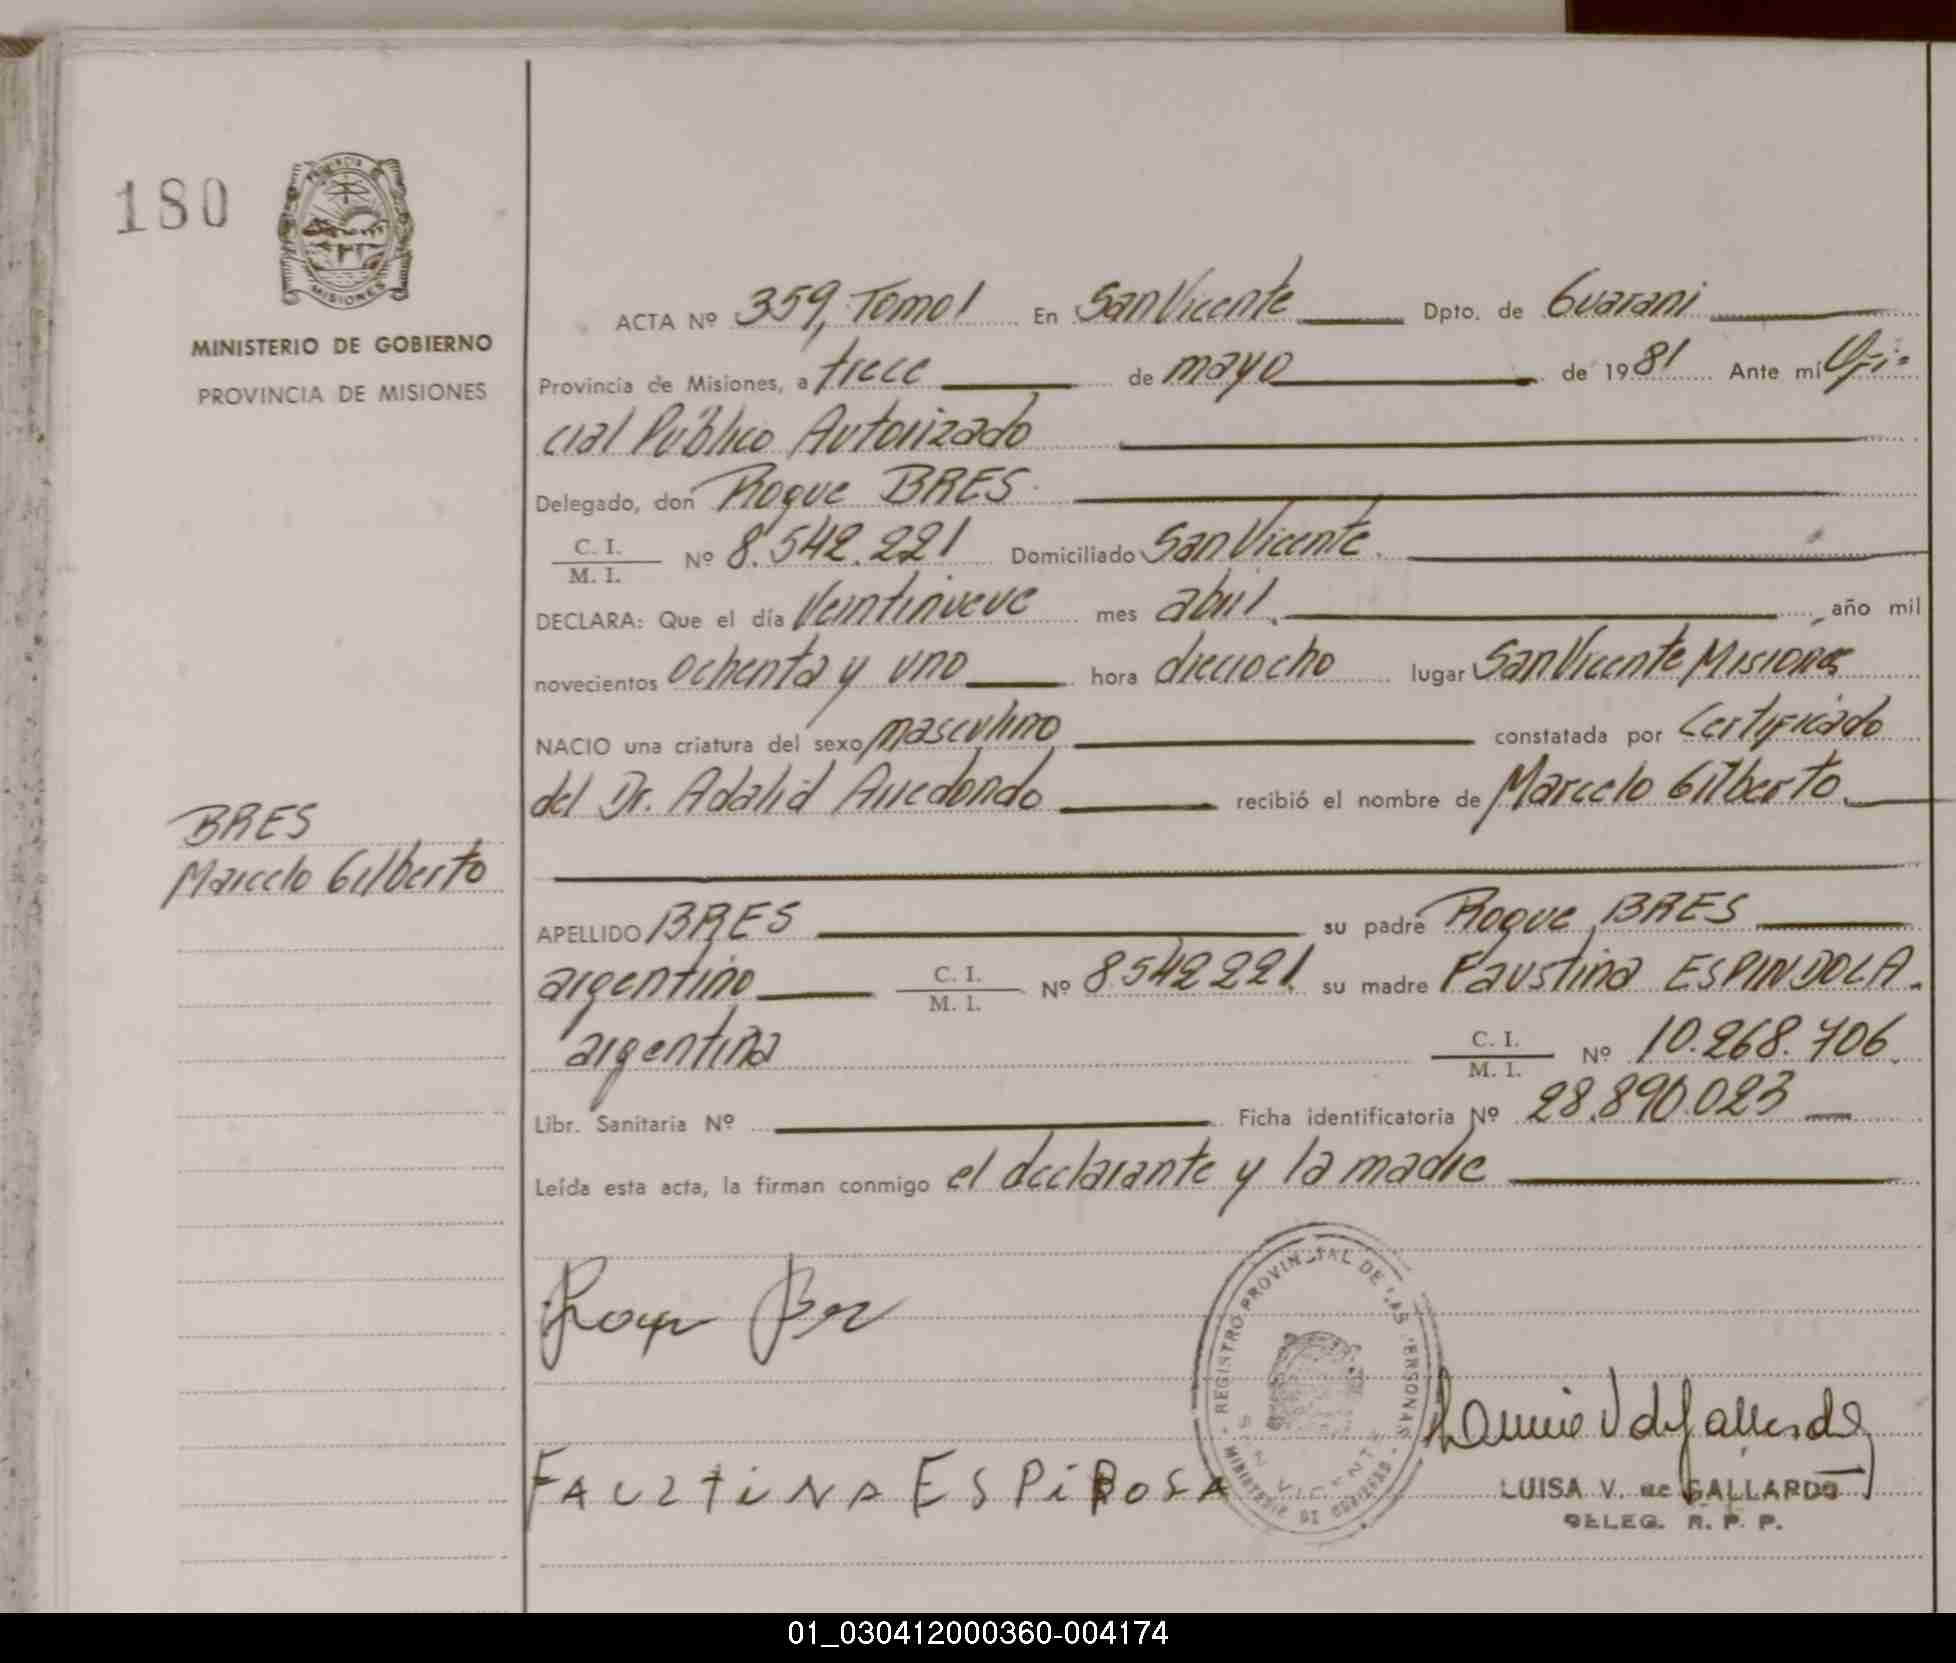 180
PROVINCIA
MISIONES
MINISTERIO DE GOBIERNO
PROVINCIA DE MISIONES
BRES
Marcelo Gilberto
ACTA Nº 359, Tomo I En San Vicente Dpto. de Guarani
Provincia de Misiones, a trece de mayo de 1981 Ante mí Ofi-
cial Público Autorizado
Delegado, don Roque BRES
C. I.
M. I. Nº 8.542.221 Domiciliado San Vicente.
DECLARA: Que el día Veintinueve mes abril. año mil
novecientos ochenta y uno hora dieciocho lugar San Vicente Misiones
NACIO una criatura del sexo masculino constatada por Certificado
del Dr. Adalid Arredondo recibió el nombre de Marcelo Gilberto
APELLIDO BRES su padre Roque BRES
argentino C. I. M. I. Nº 8.542.221. su madre Faustina ESPINDOLA.
argentina C. I. M. I. Nº 10.268.706.
Libr. Sanitaria Nº Ficha identificatoria Nº 28.890.023
Leída esta acta, la firman conmigo el declarante y la madre
Roque Bres
FAUZTiNA ESPiROSA
REGISTRO PROVINCIAL DE LAS PERSONAS
SAN VICENTE
LUISA V. de GALLARDO
DELEG. R. P. P.
01_030412000360-004174